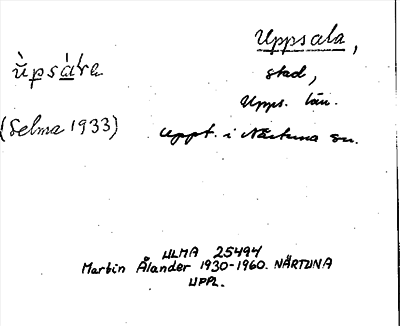 Uppsala,
ùpsára
stad,
Upps. län.
(Selma 1933)
Uppt. i Närtuna sn.
ULMA 25494
Martin Ålander 1930-1960. NÄRTUNA
UPPL.